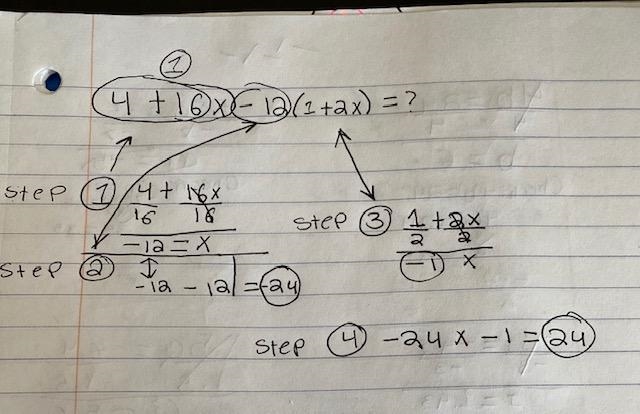 ①
4 + 16x - 12 (1 + 2x) = ?
Step ① 4/16 + 16x/16
-12 = x
Step ② -12 - 12 = -24
Step ③ 1/2 + 2x/2
-1 x
Step ④ -24 x -1 = 24